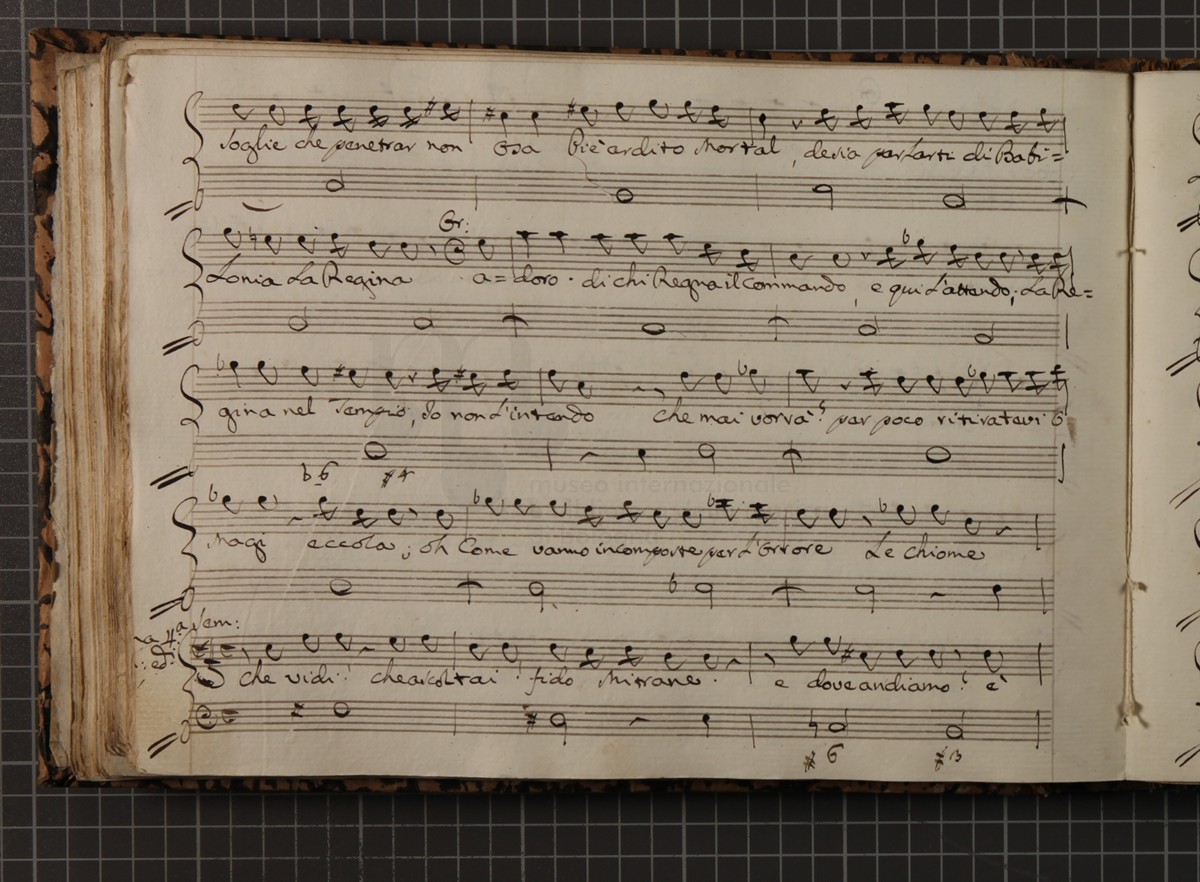 Soglie che penetrar non Osa Piè ardito Mortal, desia parlarti di Babi=
Or:
Lonia La Regina a=doro. di chi Regna il Commando, e qui L'attendo; La Re=
gina nel Tempio, Io non L'intendo che mai vorrà? per poco ritiratevi o
b6 #4
Magi eccola; oh Come vanno incomposte per L'Errore Le chiome
Sem:
che vidi! che ascoltai! fido Mitrane. e dove andiamo? è
#6 #3
museo internazionale